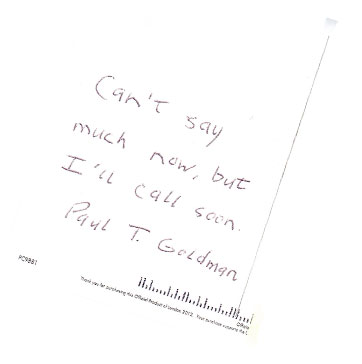 Can't say
much now, but
I'll call soon.
Paul T. Goldman
PC9BB1
Thank you for purchasing this Official Product of London 2012. Your purchase supports the